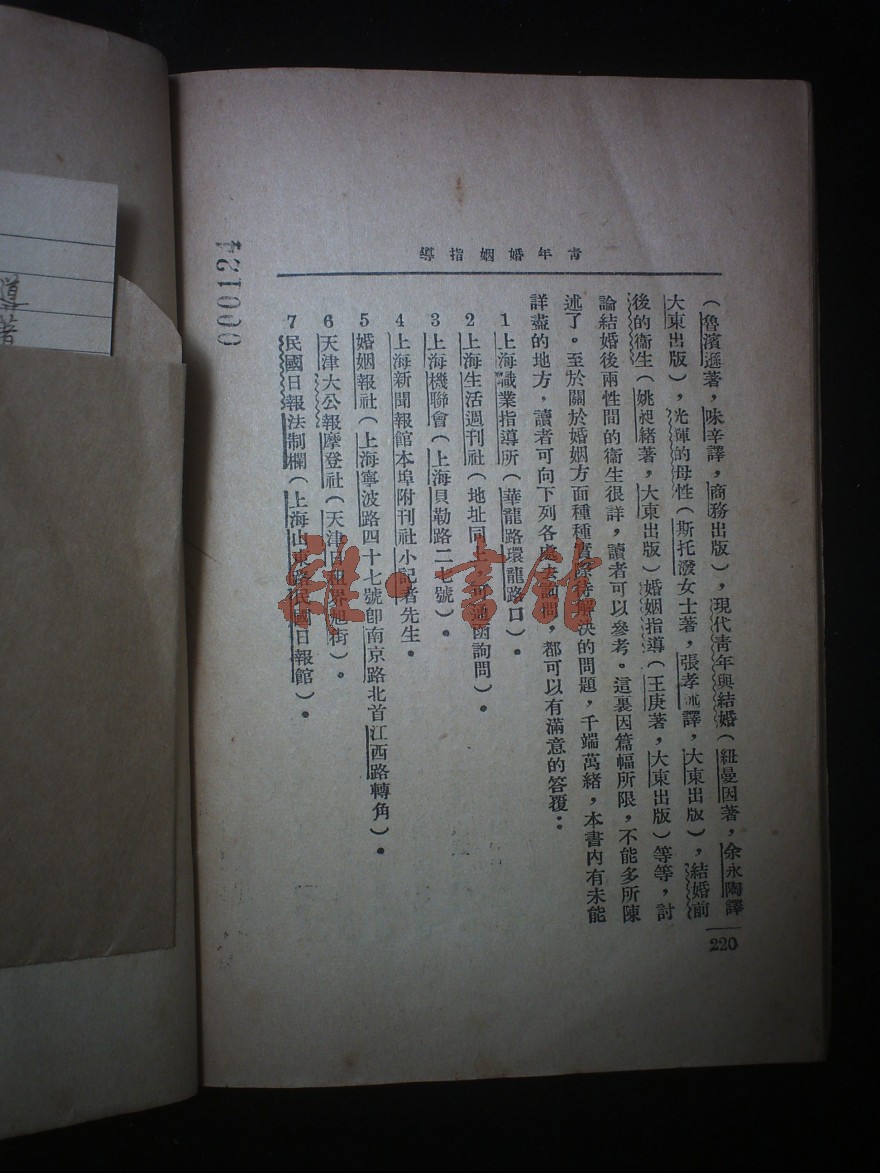 青年婚姻指導
(魯濱遜著,味辛譯,商務出版),現代青年與結婚(紐曼因著,余永陶譯
大東出版),光輝的母性(斯托潑女士著,張孝譯,大東出版),結婚前
後的衞生(姚昶緒著,大東出版)婚姻指導(王庚著,大東出版)等等,討
論結婚後兩性間的衞生很詳,讀者可以參考。這裏因篇幅所限,不能多所陳
述了。至於關於婚姻方面種種實際待解決的問題,千端萬緒,本書內有未能
詳盡的地方,讀者可向下列各處去詢問,都可以有滿意的答覆:
1 上海職業指導所(華龍路環龍路口)。
2 上海生活週刊社(地址同上,可通函詢問)。
3 上海機聯會(上海貝勒路二七號)。
4 上海新聞報館本埠附刊社小記者先生。
5 婚姻報社(上海寧波路四十七號卽南京路北首江西路轉角)。
6 天津大公報摩登社(天津日租界旭街)。
7 民國日報法制欄(上海山東路民國日報館)。
220
雜·書館
道
著